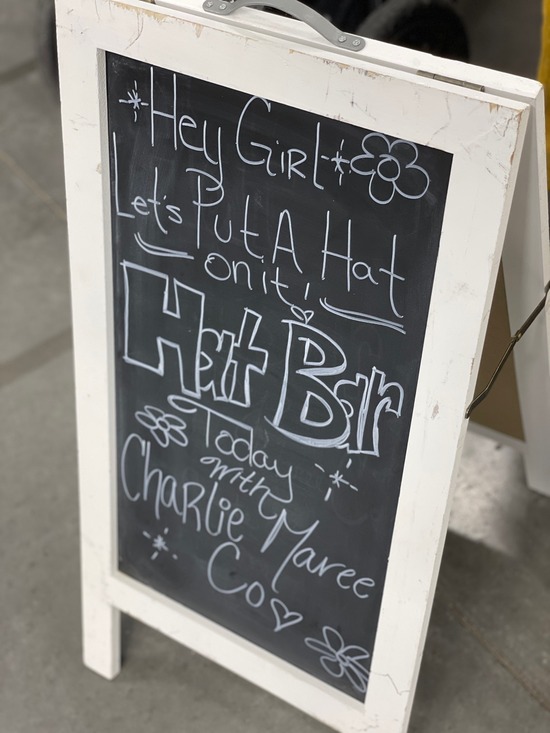 Hey Girl
Let's Put A Hat
on it!
Hat Bar
Today
with
Charlie Maree
Co